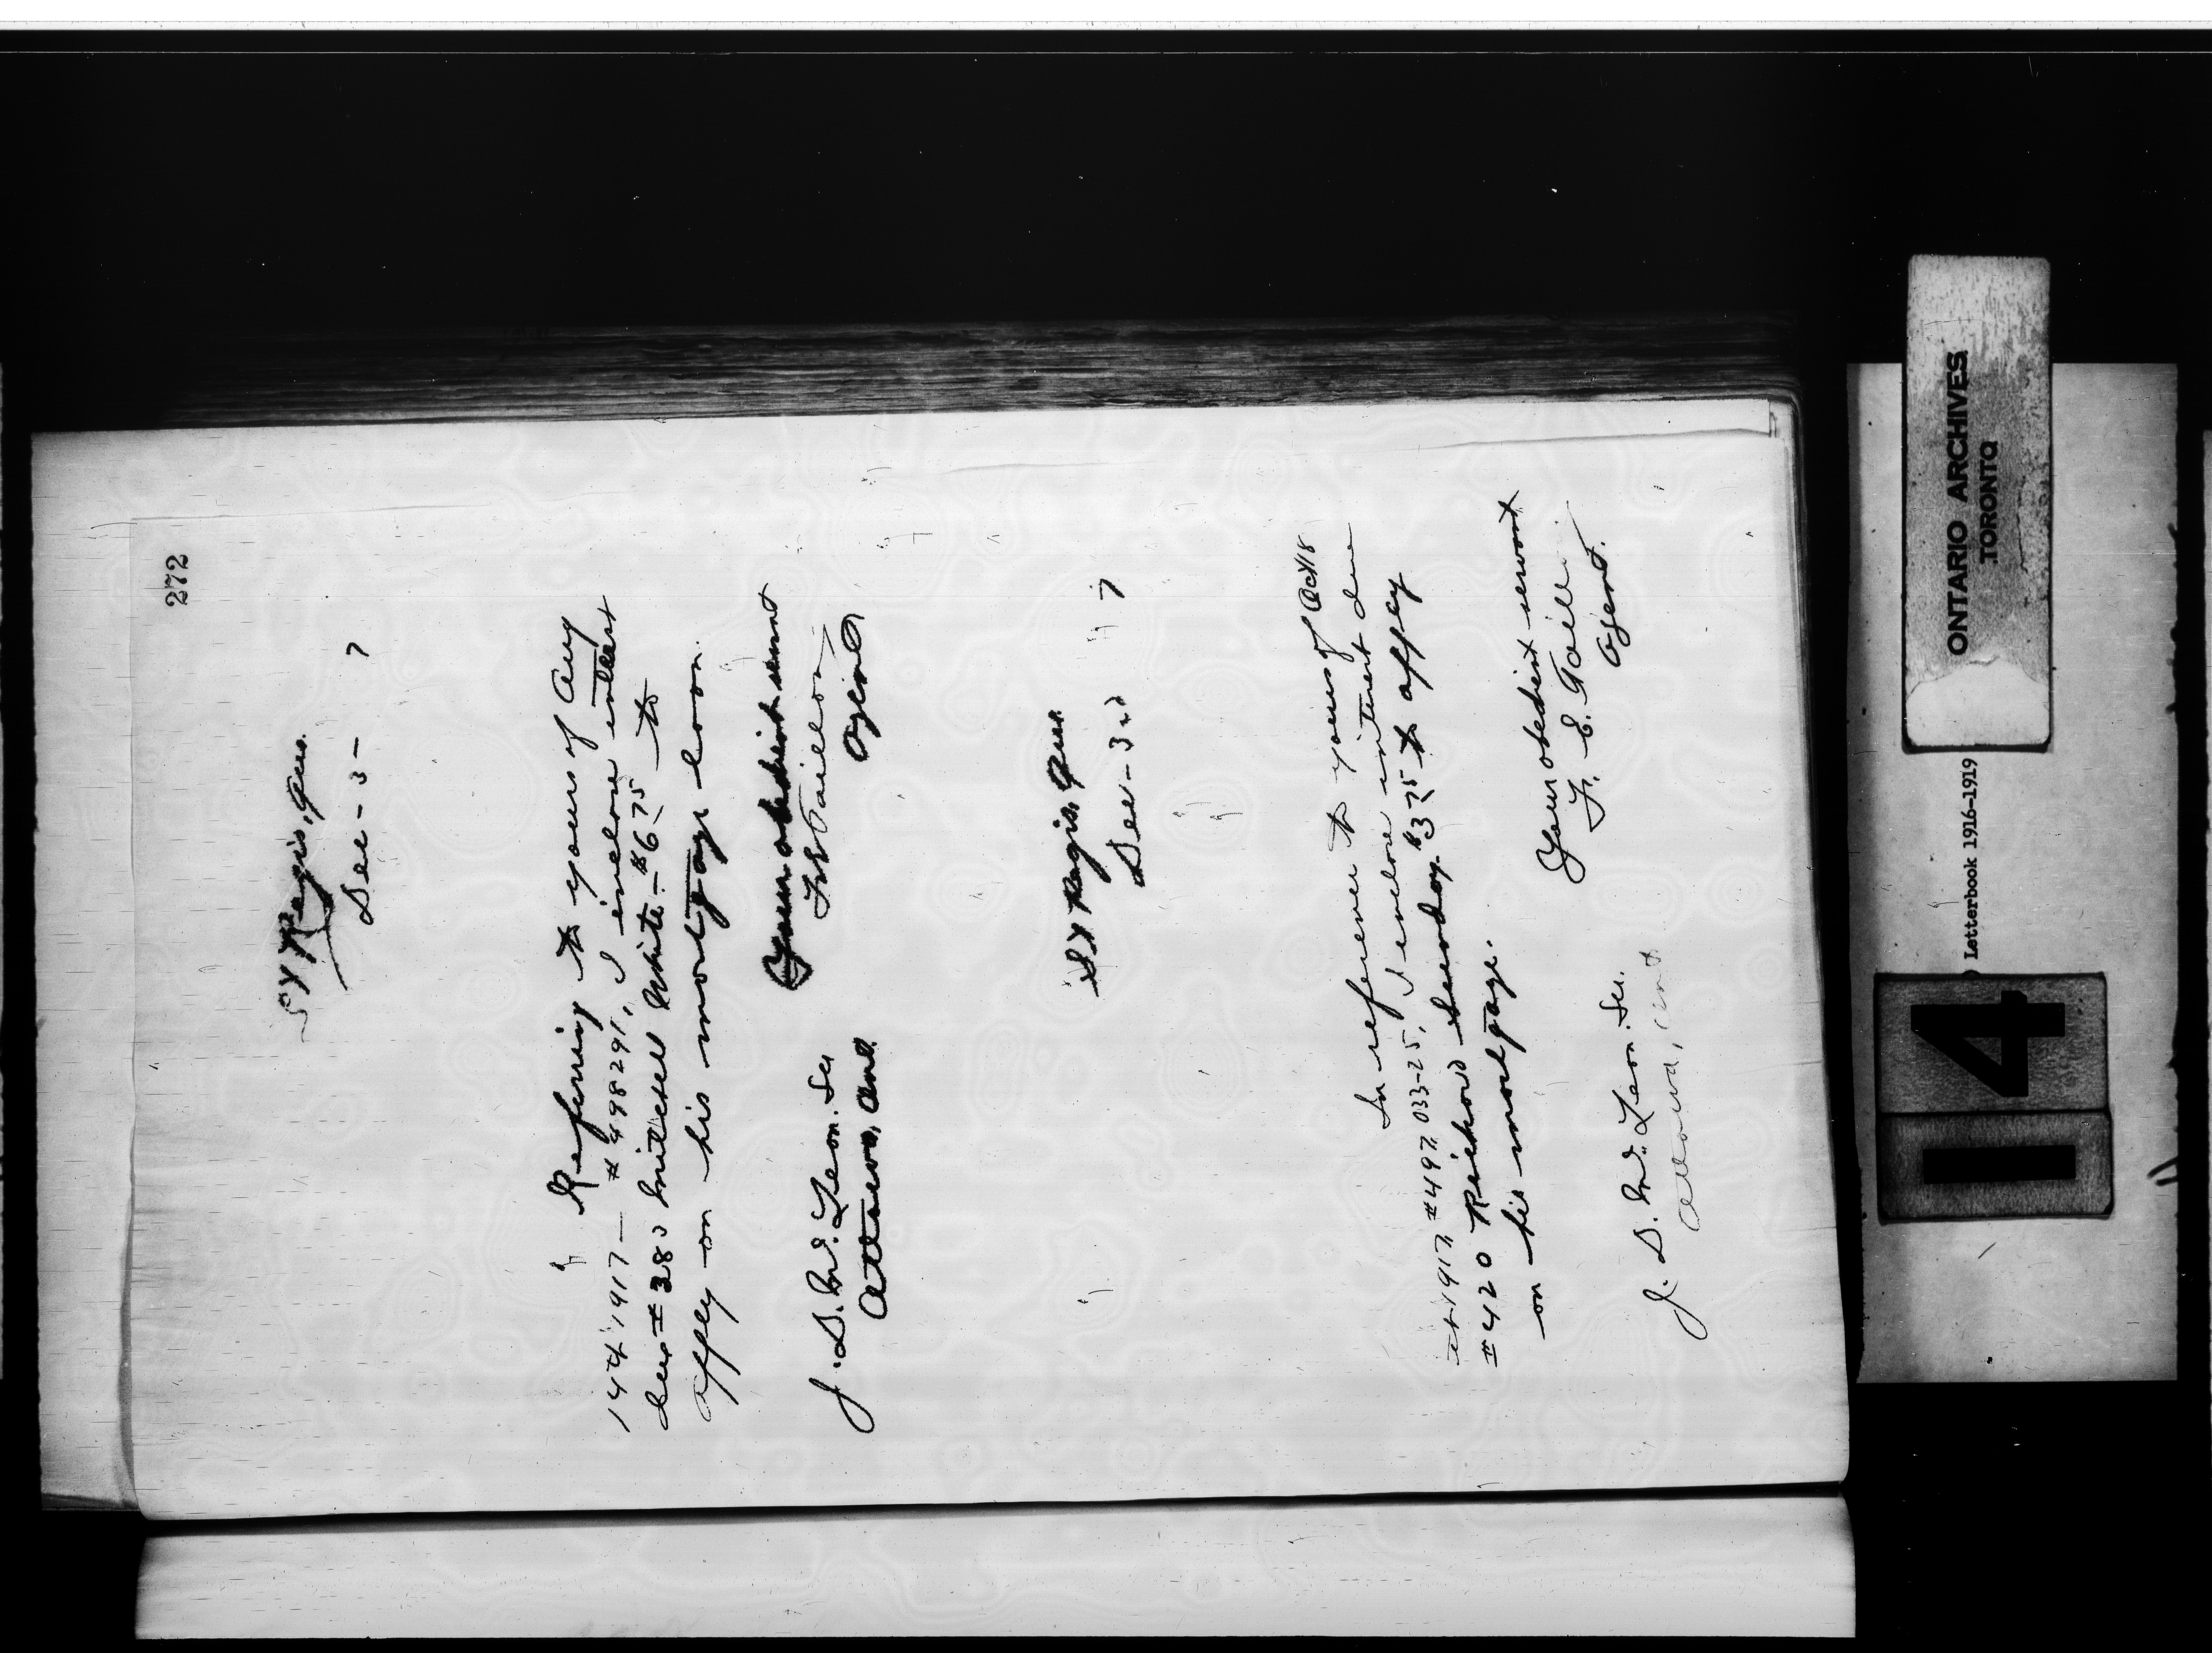 272
St Regis, Que.
Dec - 3 - 7
Referring to yours of Aug
14th 1917 — #498291, I inclose interest
due #380 Mitchell White - $6 75 to
apply on his mortgage loan.
Your obedient servant
F E Taillon
Agent
J. D. McLean. Sec
Ottawa, Ont.
St Regis, Que.
Dec - 3rd 17
In reference to yours of Oct 18
1917 #497033-25, I inclose interest due
#420 Richard $3 75 to apply
on his mortgage.
Your obedient servant
F. E. Taillon
Agent.
J. D. McLean. Sec.
Ottawa, Ont
ONTARIO ARCHIVES
TORONTO
Letterbook 1916-1919
14